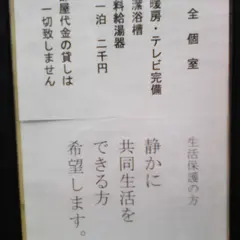 全個室
暖房・テレビ完備
浴槽
料給湯器
一泊 二千円
屋代金の貸しは
一切致しません
生活保護の方
静かに
共同生活を
できる方
希望します。